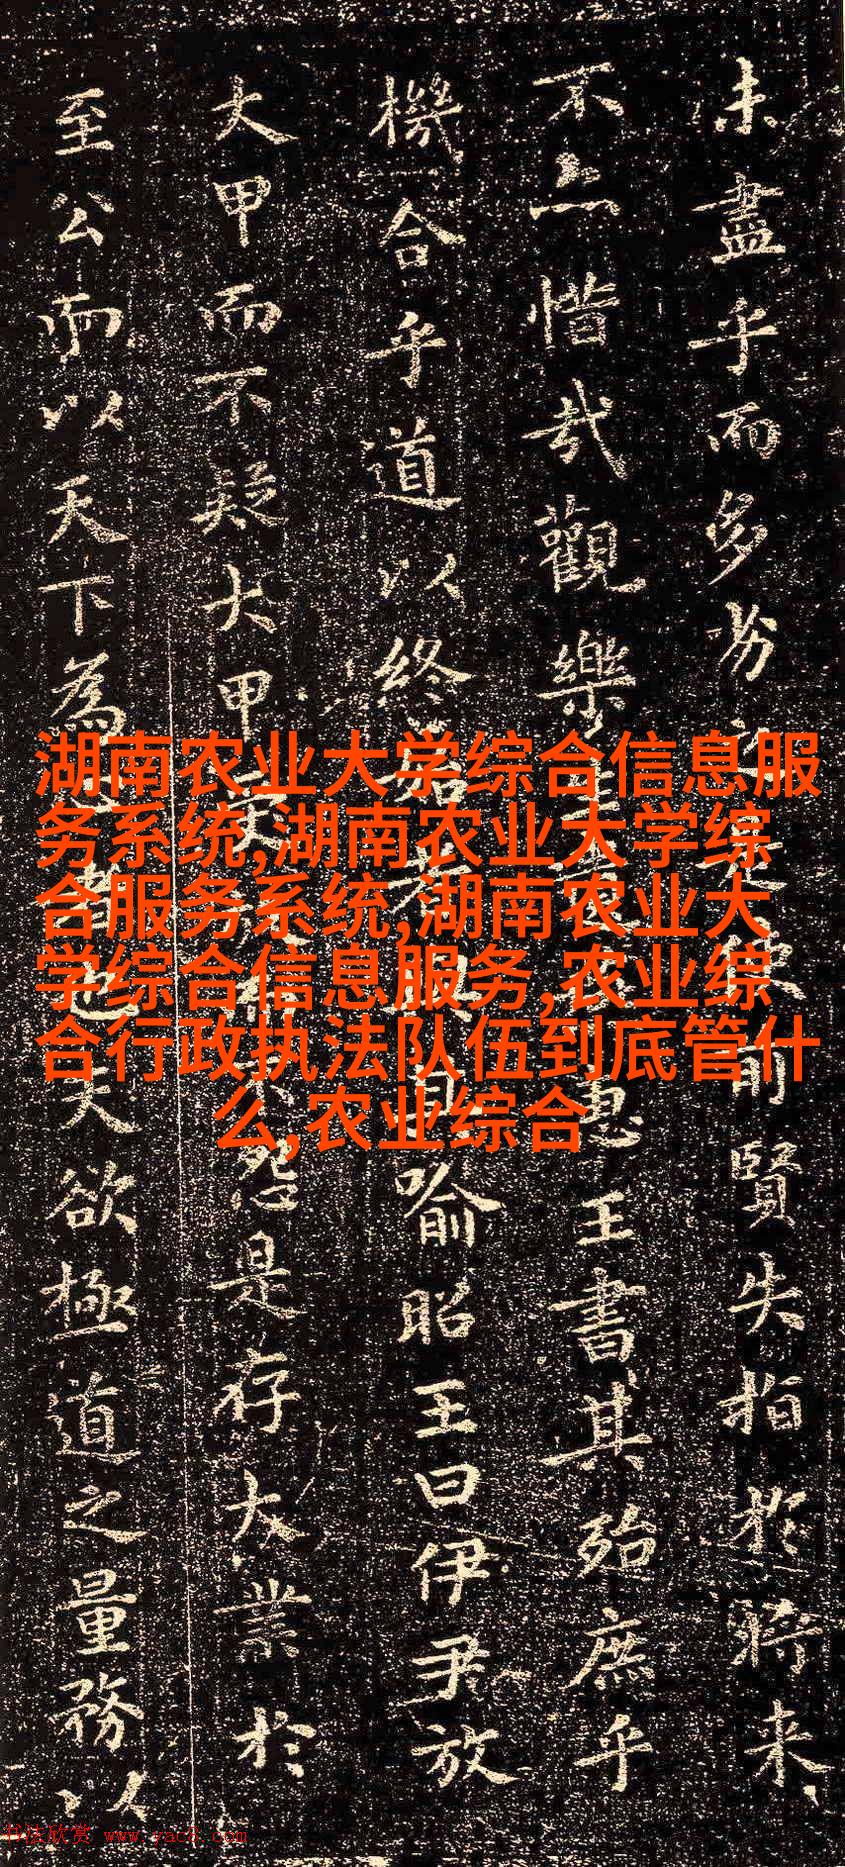 未盡乎而多劣之是使前賢失指於將来
不亦惜哉觀樂生遺燕惠王書其殆庶乎
機合乎道以終始者與其喻昭王曰伊尹放
大甲而不疑大甲受放而不怨是存大業於
至公而以天下為心者也夫欲極道之量務以
湖南农业大学综合信息服
务系统,湖南农业大学综
合服务系统,湖南农业大
学综合信息服务,农业综
合行政执法队伍到底管什
么,农业综合
书法欣赏 www.yac8.com